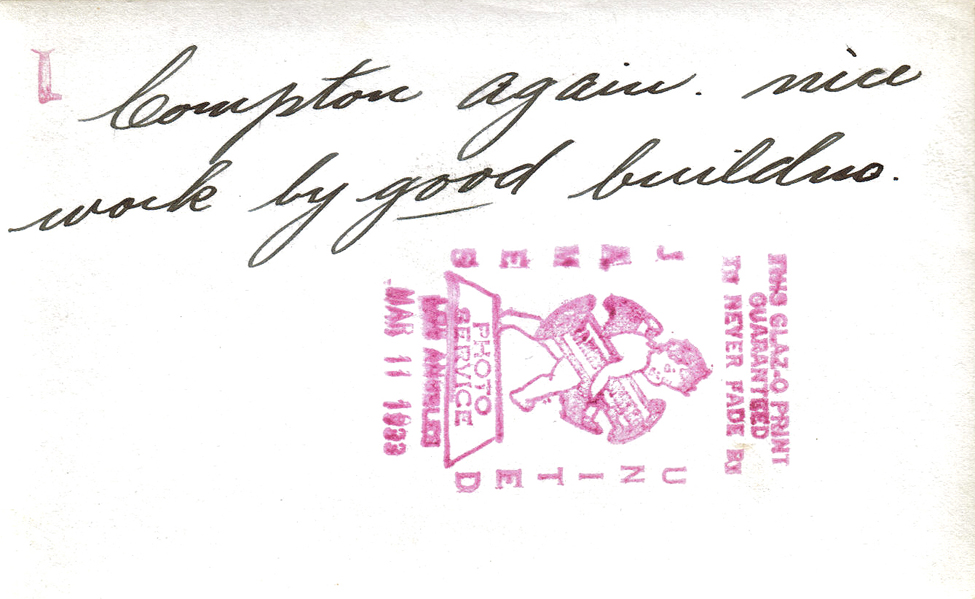 Compton again. nice
work by good builders.
THIS GLAZ-O PRINT
GUARANTEED
TO NEVER FADE BY
JAMES
UNITED
PHOTO
SERVICE
LOS ANGELES
MAR 11 1933